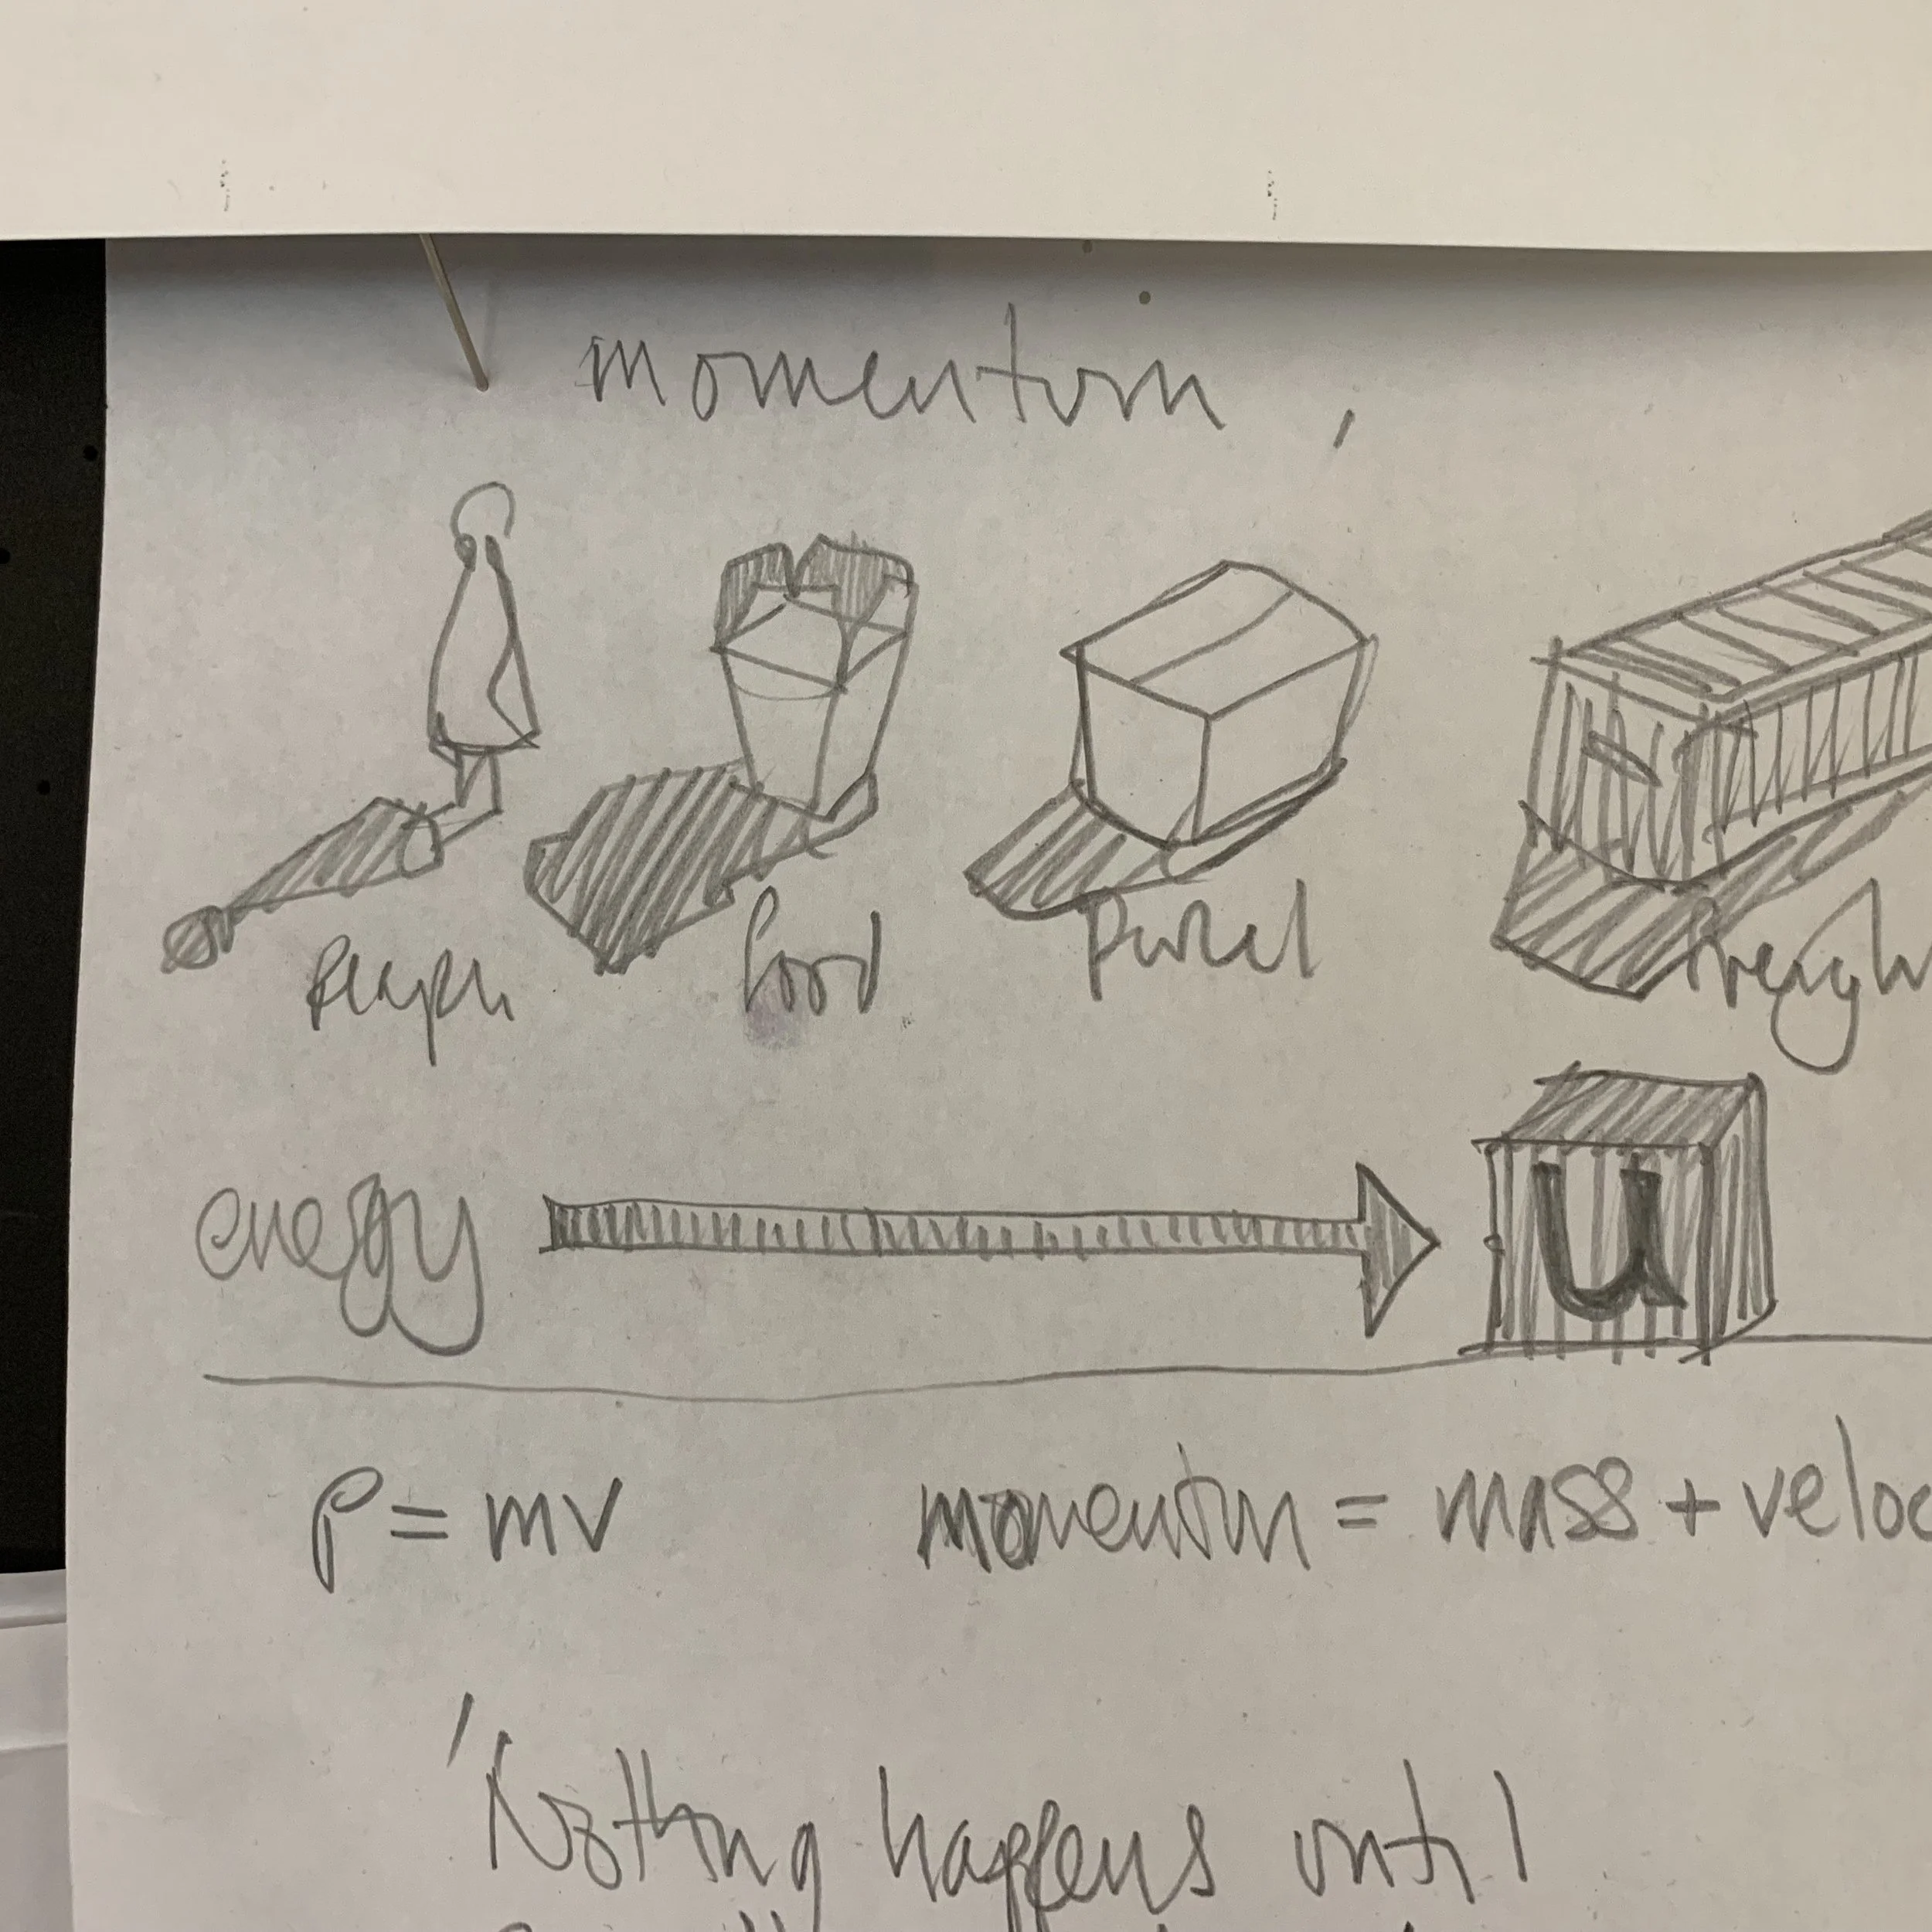 momentum,
food parcel freigh
energy u
p = mv momentum = mass + veloc
'Nothing happens until